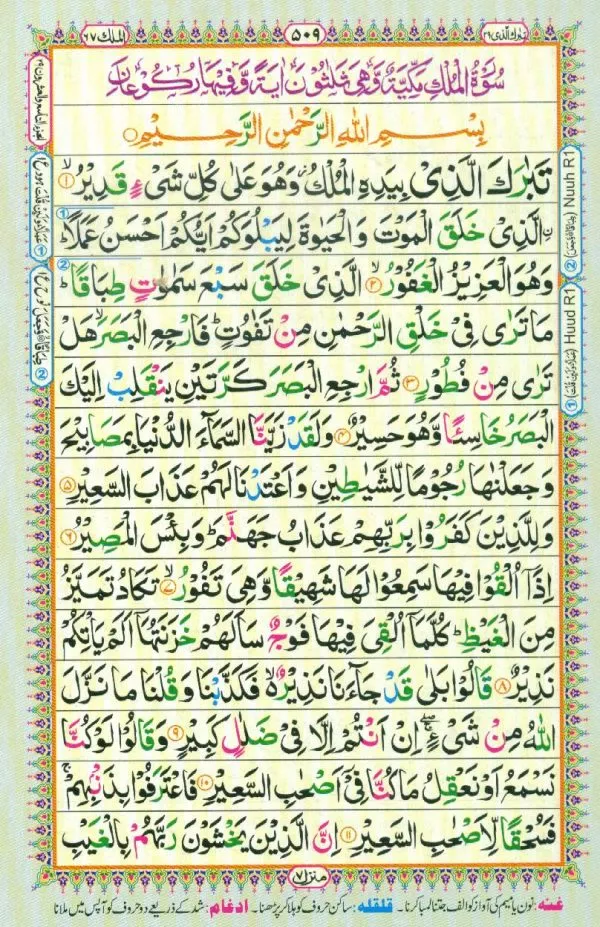 تبٰرك الذی ۲۹
۵۰۹
الملك ۶۷
سُوْرَةُ الْمُلْكِ مَكِّيَّةٌ وَّهِيَ ثَلٰثُوْنَ اٰيَةً وَّفِيْهَا رُكُوْعَانِ
بِسْمِ اللهِ الرَّحْمٰنِ الرَّحِيْمِ
تَبٰرَكَ الَّذِيْ بِيَدِهِ الْمُلْكُ وَهُوَ عَلٰى كُلِّ شَيْءٍ قَدِيْرُ ۙ﴿۱﴾
ۨالَّذِيْ خَلَقَ الْمَوْتَ وَالْحَيٰوةَ لِيَبْلُوَكُمْ اَيُّكُمْ اَحْسَنُ عَمَلًا ؕ
وَهُوَ الْعَزِيْزُ الْغَفُوْرُ ۙ﴿۲﴾ الَّذِيْ خَلَقَ سَبْعَ سَمٰوٰتٍ طِبَاقًا ؕ
مَا تَرٰى فِيْ خَلْقِ الرَّحْمٰنِ مِنْ تَفٰوُتٍ ؕ فَارْجِعِ الْبَصَرَ ۙ هَلْ
تَرٰى مِنْ فُطُوْرٍ ﴿۳﴾ ثُمَّ ارْجِعِ الْبَصَرَ كَرَّتَيْنِ يَنْقَلِبْ اِلَيْكَ
الْبَصَرُ خَاسِئًا وَّهُوَ حَسِيْرٌ ﴿۴﴾ وَلَقَدْ زَيَّنَّا السَّمَآءَ الدُّنْيَا بِمَصَابِيْحَ
وَجَعَلْنٰهَا رُجُوْمًا لِّلشَّيٰطِيْنِ وَاَعْتَدْنَا لَهُمْ عَذَابَ السَّعِيْرِ ﴿۵﴾
وَلِلَّذِيْنَ كَفَرُوْا بِرَبِّهِمْ عَذَابُ جَهَنَّمَ ؕ وَبِئْسَ الْمَصِيْرُ ﴿۶﴾
اِذَآ اُلْقُوْا فِيْهَا سَمِعُوْا لَهَا شَهِيْقًا وَّهِيَ تَفُوْرُ ۙ﴿۷﴾ تَكَادُ تَمَيَّزُ
مِنَ الْغَيْظِ ؕ كُلَّمَآ اُلْقِيَ فِيْهَا فَوْجٌ سَاَلَهُمْ خَزَنَتُهَآ اَلَمْ يَاْتِكُمْ
نَذِيْرٌ ﴿۸﴾ قَالُوْا بَلٰى قَدْ جَآءَنَا نَذِيْرٌ ۙ فَكَذَّبْنَا وَقُلْنَا مَا نَزَّلَ
اللهُ مِنْ شَيْءٍ ۚ اِنْ اَنْتُمْ اِلَّا فِيْ ضَلٰلٍ كَبِيْرٍ ﴿۹﴾ وَقَالُوْا لَوْ كُنَّا
نَسْمَعُ اَوْ نَعْقِلُ مَا كُنَّا فِيْٓ اَصْحٰبِ السَّعِيْرِ ﴿۱۰﴾ فَاعْتَرَفُوْا بِذَنْۢبِهِمْ ۚ
فَسُحْقًا لِّاَصْحٰبِ السَّعِيْرِ ﴿۱۱﴾ اِنَّ الَّذِيْنَ يَخْشَوْنَ رَبَّهُمْ بِالْغَيْبِ
منزل ۷
غنه: نون یا میم کی آواز کو الف جتنا لمبا کرنا۔ قلقله: ساکن حروف کو ہلا کر پڑھنا۔ ادغام: شد کے ذریعے دو حروف کو آپس میں ملانا
Nuuh R1
Huud R1